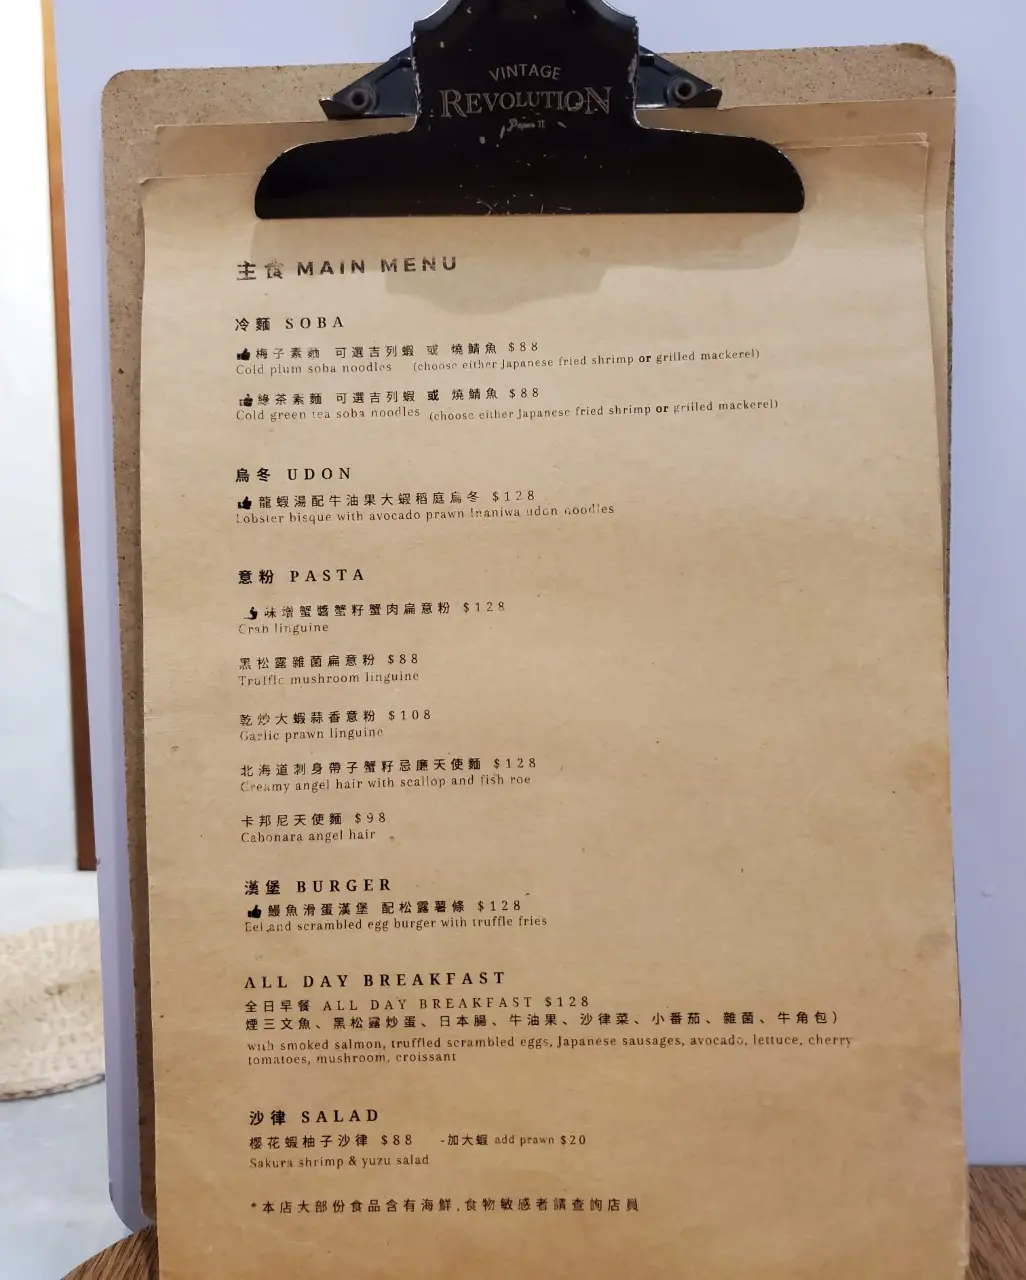 VINTAGE
REVOLUTION
主食 MAIN MENU
冷麵 SOBA
梅子素麵 可選吉列蝦 或 燒鯖魚 $88
Cold plum soba noodles (choose either Japanese fried shrimp or grilled mackerel)
綠茶素麵 可選吉列蝦 或 燒鯖魚 $88
Cold green tea soba noodles (choose either Japanese fried shrimp or grilled mackerel)
烏冬 UDON
龍蝦湯配牛油果大蝦稻庭烏冬 $128
Lobster bisque with avocado prawn Inaniwa udon noodles
意粉 PASTA
味噌蟹醬蟹籽蟹肉扁意粉 $128
Crab linguine
黑松露雜菌扁意粉 $88
Truffle mushroom linguine
乾炒大蝦蒜香意粉 $108
Garlic prawn linguine
北海道刺身帶子蟹籽忌廉天使麵 $128
Creamy angel hair with scallop and fish roe
卡邦尼天使麵 $98
Cabonara angel hair
漢堡 BURGER
鰻魚滑蛋漢堡 配松露薯條 $128
Eel and scrambled egg burger with truffle fries
ALL DAY BREAKFAST
全日早餐 ALL DAY BREAKFAST $128
煙三文魚、黑松露炒蛋、日本腸、牛油果、沙律菜、小番茄、雜菌、牛角包)
with smoked salmon, truffled scrambled eggs, Japanese sausages, avocado, lettuce, cherry
tomatoes, mushroom, croissant
沙律 SALAD
櫻花蝦柚子沙律 $88 -加大蝦 add prawn $20
Sakura shrimp & yuzu salad
*本店大部份食品含有海鮮,食物敏感者請查詢店員